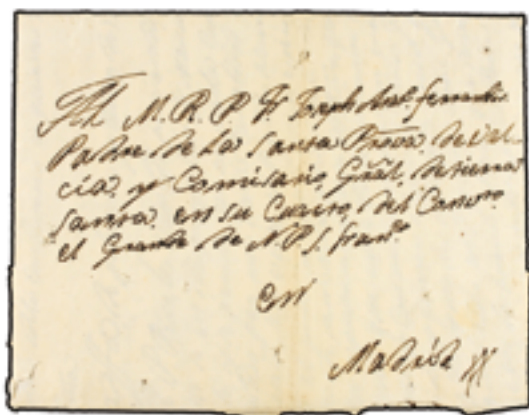 Al M. R. P. Fr. Joseph Anto. Fernandez
Padre de La Santa Prova. de Val
cia, y Comisario, Gñal, de tierra
Santa, en su Cuarto, del Convto.
el Grande de N. P. S. Franco.
en
Madrid